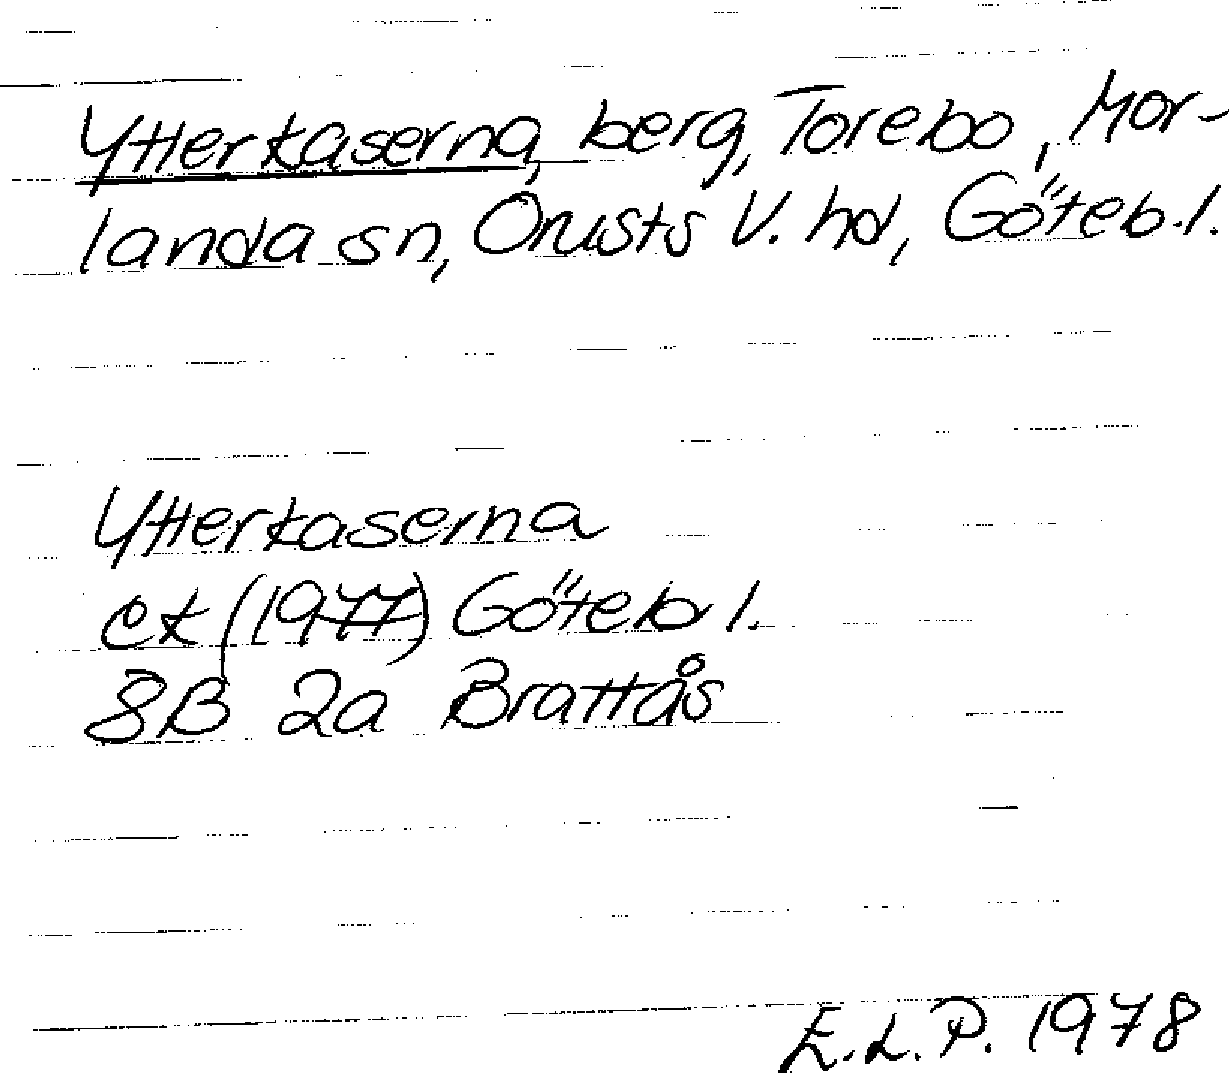 Ytterkaserna, berg, Torebo, Mor-
landa sn, Orusts V. hd, Göteb. l.
Ytterkaserna
ek (1977) Göteb l.
8B 2a Brattås
E.L.P. 1978